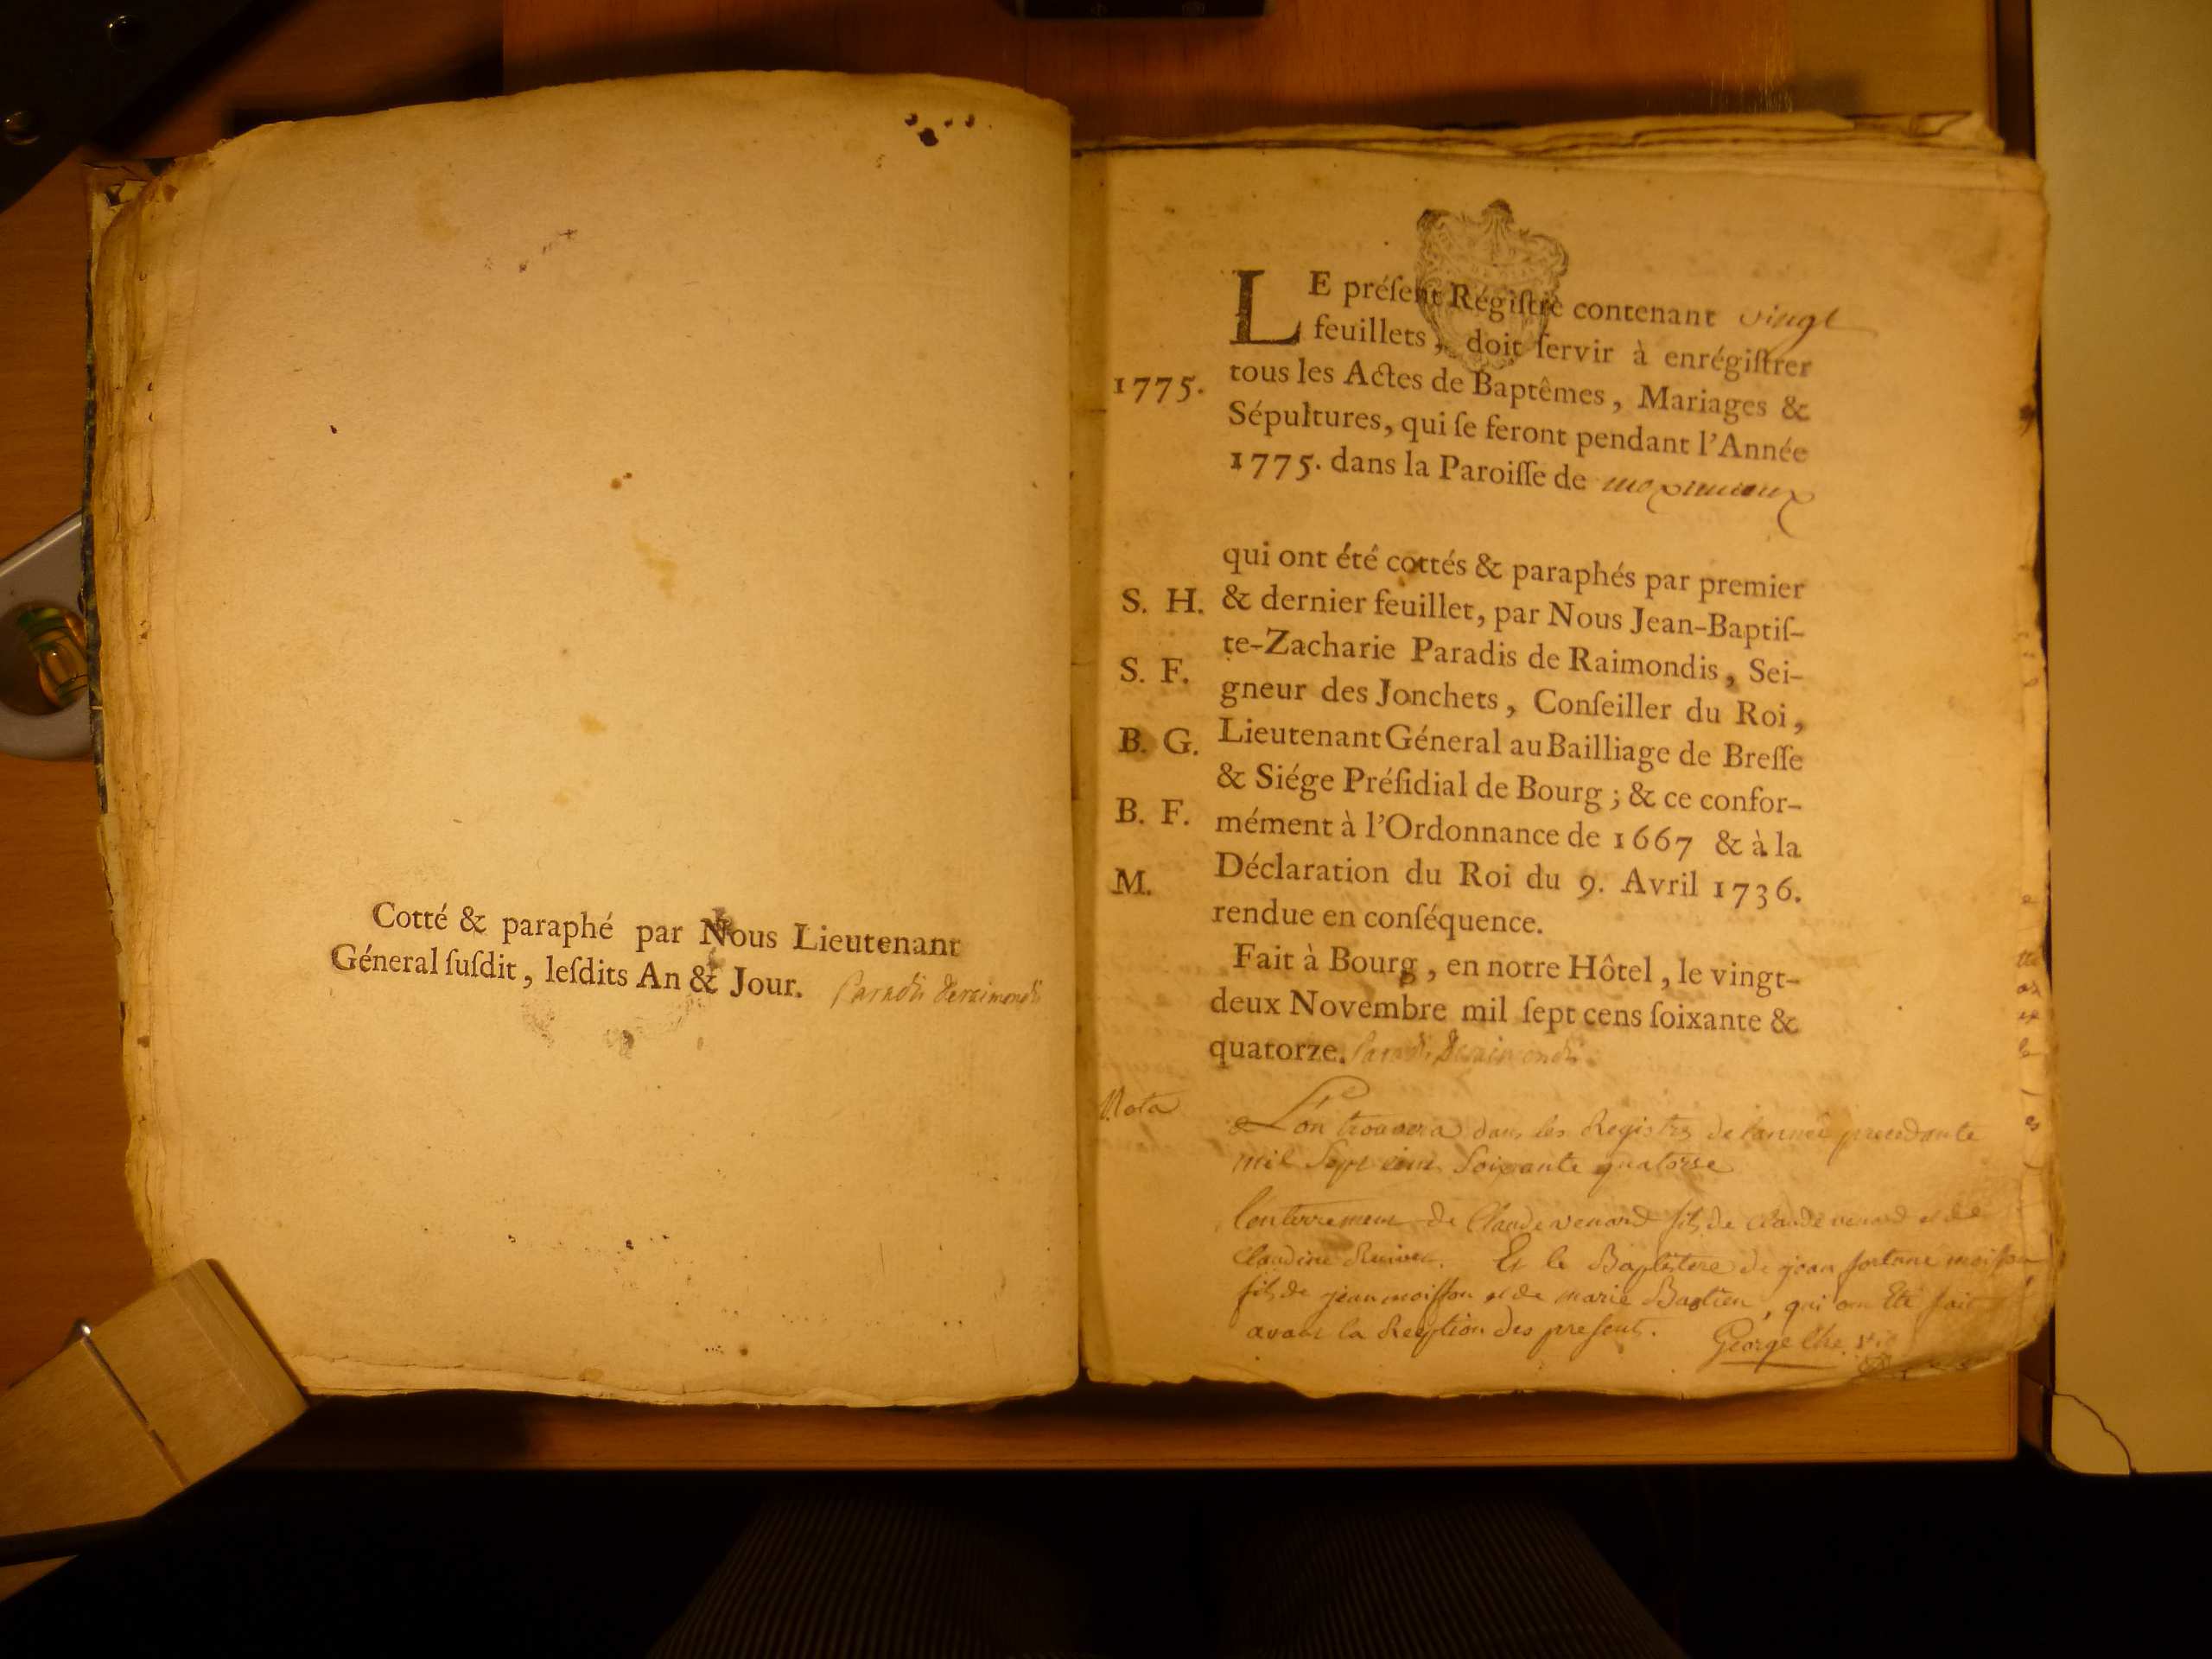 Cotté & paraphé par Nous Lieutenant
Géneral ſuſdit, leſdits An & Jour. Paradis deraimondis
LE préſent Régiſtre contenant vingt
feuillets, doit ſervir à enrégiſtrer
1775. tous les Actes de Baptêmes, Mariages &
Sépultures, qui ſe feront pendant l'Année
1775. dans la Paroiſſe de meximieux
qui ont été cottés & paraphés par premier
S. H. & dernier feuillet, par Nous Jean-Baptiſ-
te-Zacharie Paradis de Raimondis, Sei-
S. F. gneur des Jonchets, Conſeiller du Roi,
B. G. Lieutenant Géneral au Bailliage de Breſſe
& Siége Préſidial de Bourg ; & ce confor-
B. F. mément à l'Ordonnance de 1667 & à la
M. Déclaration du Roi du 9. Avril 1736.
rendue en conſéquence.
Fait à Bourg, en notre Hôtel, le vingt-
deux Novembre mil ſept cens ſoixante &
quatorze. Paradis Deraimondis
Nota L'on trouvera dans les Registres de l'année precedante
mil Sept cent Soixante quatorse
l'enterrement de Claude venard fils de claude venard et de
Claudine. Et le Baptistere de jean fortuné moisson
fils de jean moisson et de marie Bastien, qui ont Eté fait
avant la Reception des present. George